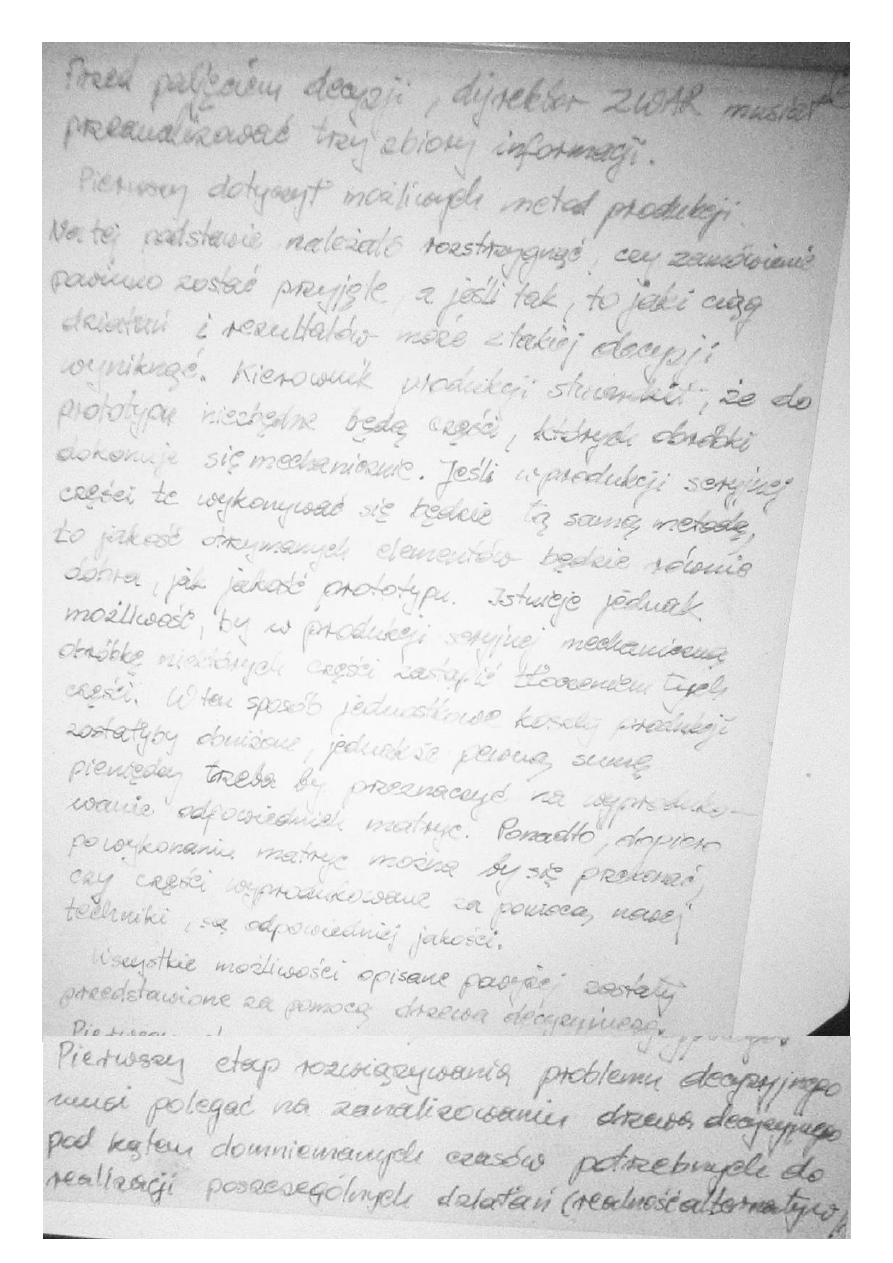 Przed podjęciem decyzji, dyrektor ZWAR musiał
przeanalizować trzy zbiory informacji.
Pierwszy dotyczył możliwych metod produkcji.
Na tej podstawie należało rozstrzygnąć, czy zamówienie
powinno zostać przyjęte, a jeśli tak, to jaki ciąg
działań i rezultatów może z takiej decyzji
wyniknąć. Kierownik produkcji stwierdził, że do
prototypu niezbędne będą części, których obróbki
dokonuje się mechanicznie. Jeśli w produkcji seryjnej
części te wykonywać się będzie tą samą metodą,
to jakość otrzymanych elementów będzie równie
dobra, jak jakość prototypu. Istnieje jednak
możliwość, by w produkcji seryjnej mechaniczną
obróbkę niektórych części zastąpić tłoczeniem tych
części. W ten sposób jednostkowe koszty produkcji
zostałyby obniżone, jednakże pewną sumę
pieniędzy trzeba by przeznaczyć na wyproduko-
wanie odpowiednich matryc. Ponadto, dopiero
po wykonaniu matryc można by się przekonać,
czy części wyprodukowane za pomocą nowej
techniki, są odpowiedniej jakości.
Wszystkie możliwości opisane powyżej zostały
przedstawione za pomocą drzewa decyzyjnego.
Pierwszy etap rozwiązywania problemu decyzyjnego
musi polegać na zanalizowaniu drzewa decyzyjnego
pod kątem domniemanych czasów potrzebnych do
realizacji poszczególnych działań (realność alternatyw)